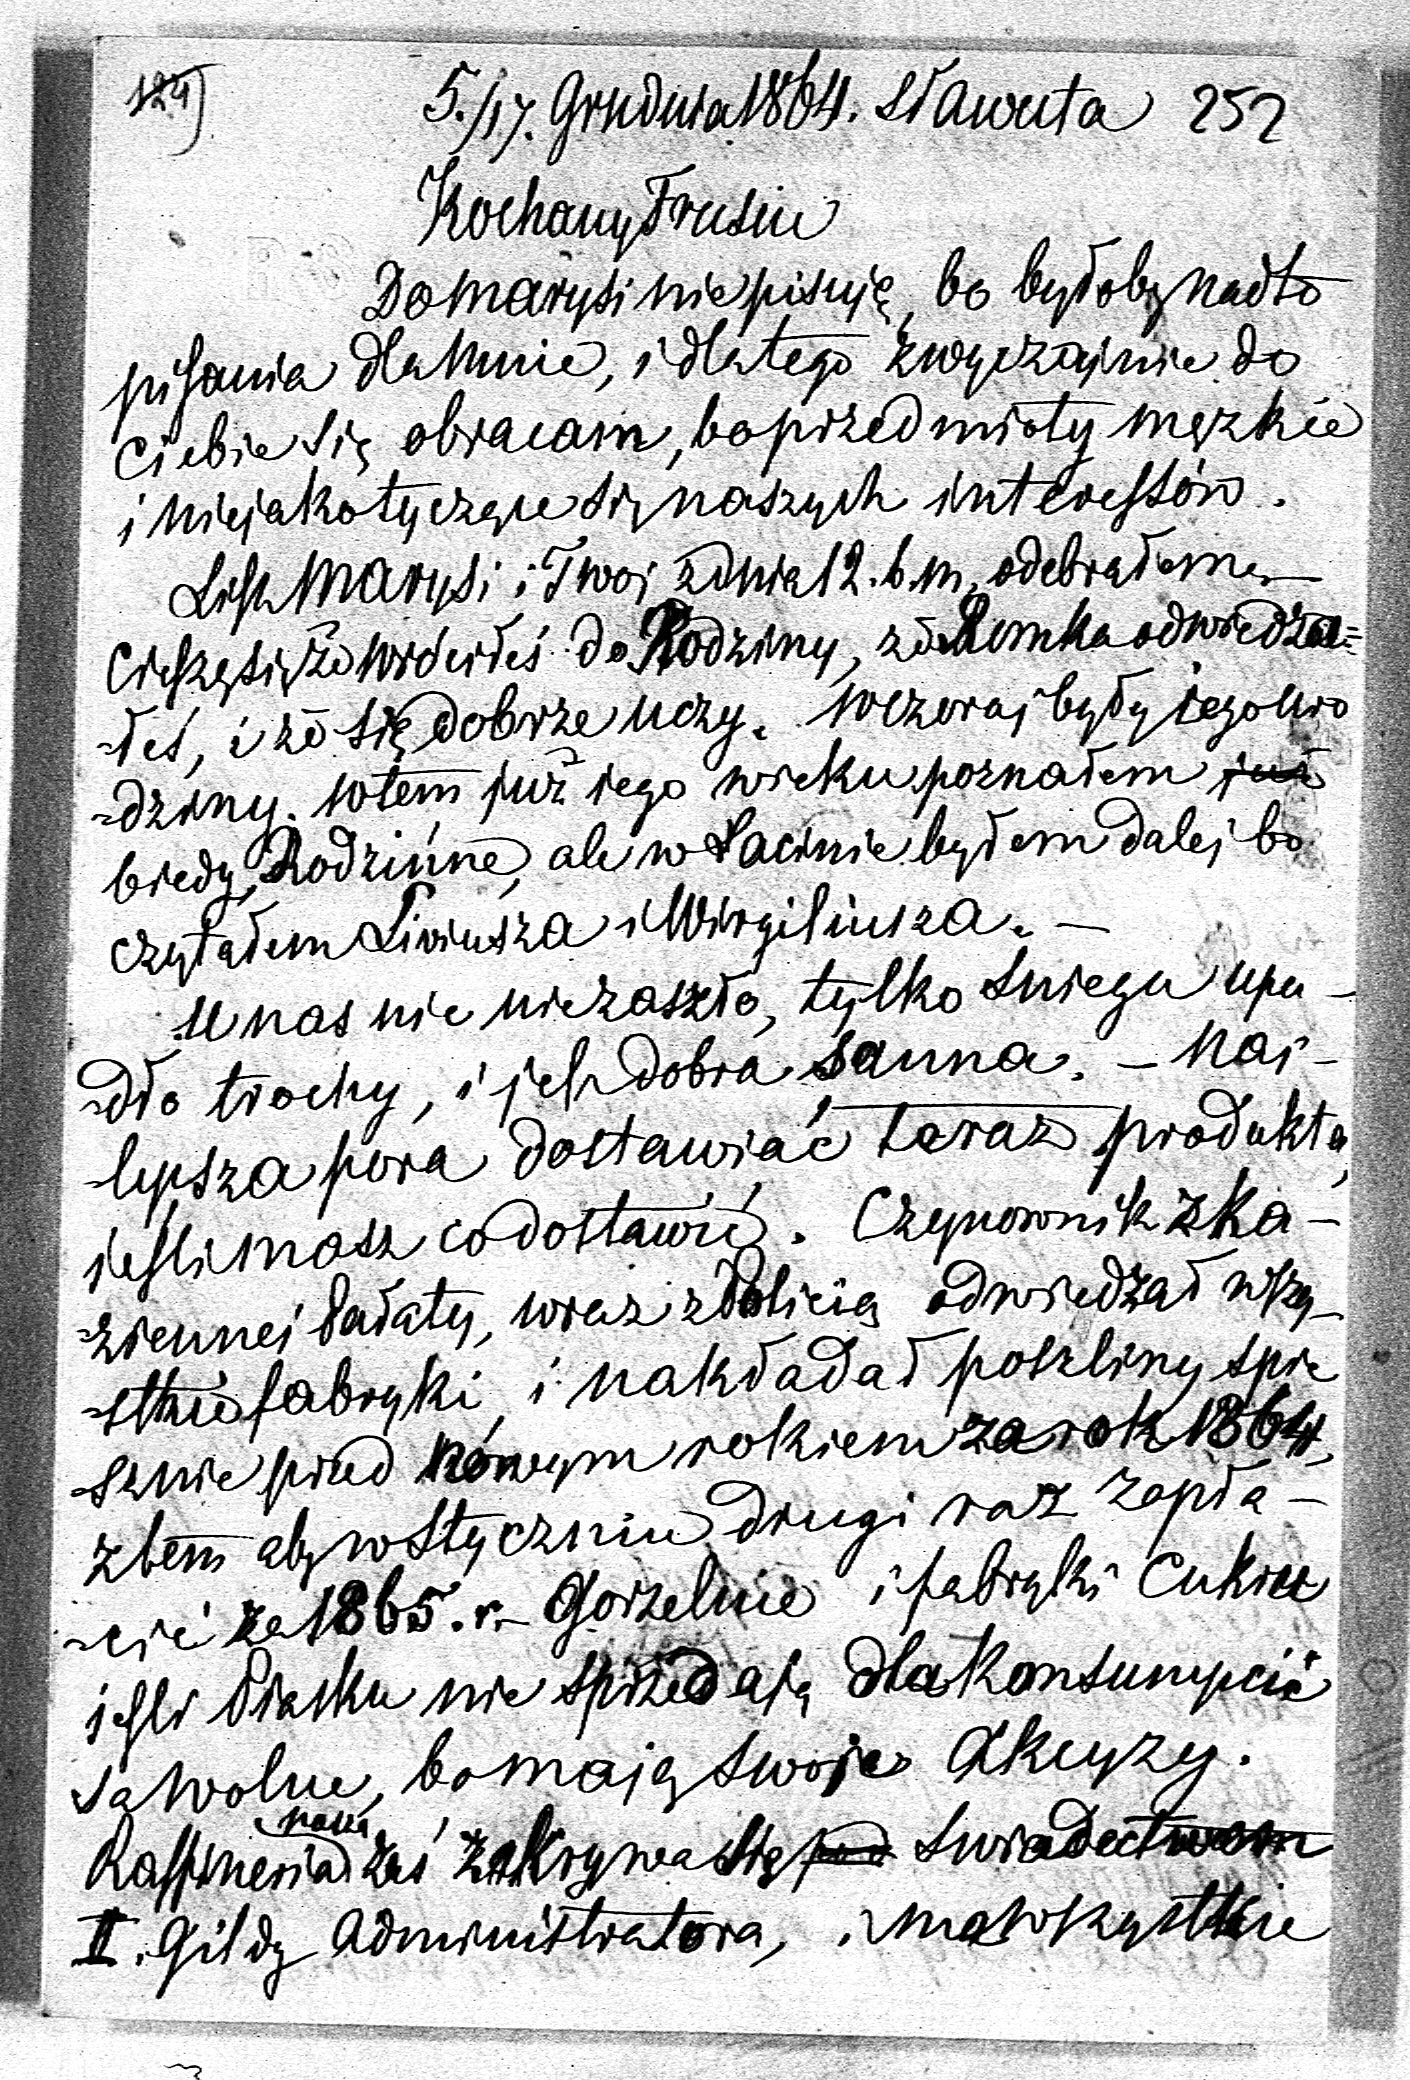 124)
5./17. Grudnia 1864. Sławuta 252
Kochany Frusiu
Do Marysi nie pisuję, bo byłoby nadto
pisania dla mnie, i dlatego zwyczajnie do
ciebie się obracam, bo przedmioty męzkie
i niejako tyczące się naszych interessów.
List Marysi i Twoj z dnia 12. b. m. odebrałem
cieszę się że wróciłeś do Rodziny, że Romka odwiedza=
-łeś, i że się dobrze uczy. Wczoraj były iego uro
-dziny. W tem już iego wieku poznałem już
biedy Rodzinne, ale w Łacinie byłem dalej bo
czytałem Liviusza i Wirgiliusza. —
U nas nic nie zaszło, tylko sniegu upa-
-dło trochy, i jest dobra sanna. — Naj-
-lepsza pora dostawiać teraz produkta,
jeśli masz co dostawić. Czynownik z Ka-
-ziennei Pałaty, wraz z Policią odwiedzał wszy-
-stkie fabryki i nakładał poszliny spie
-sznie przed Nowym rokiem za rok 1864,
z tem aby w styczniu drugi raz zapła-
-cić za 1865. r. — Gorzelnie i fabryki Cukru
jesli Piasku nie sprzedają dla Konsumpcié
są wolne, bo mają swoje Akcyzy.
nasza
Raffineria zaś zakrywa się pod swiadectwem
II. Gildy Administratora, i ma wszystkie